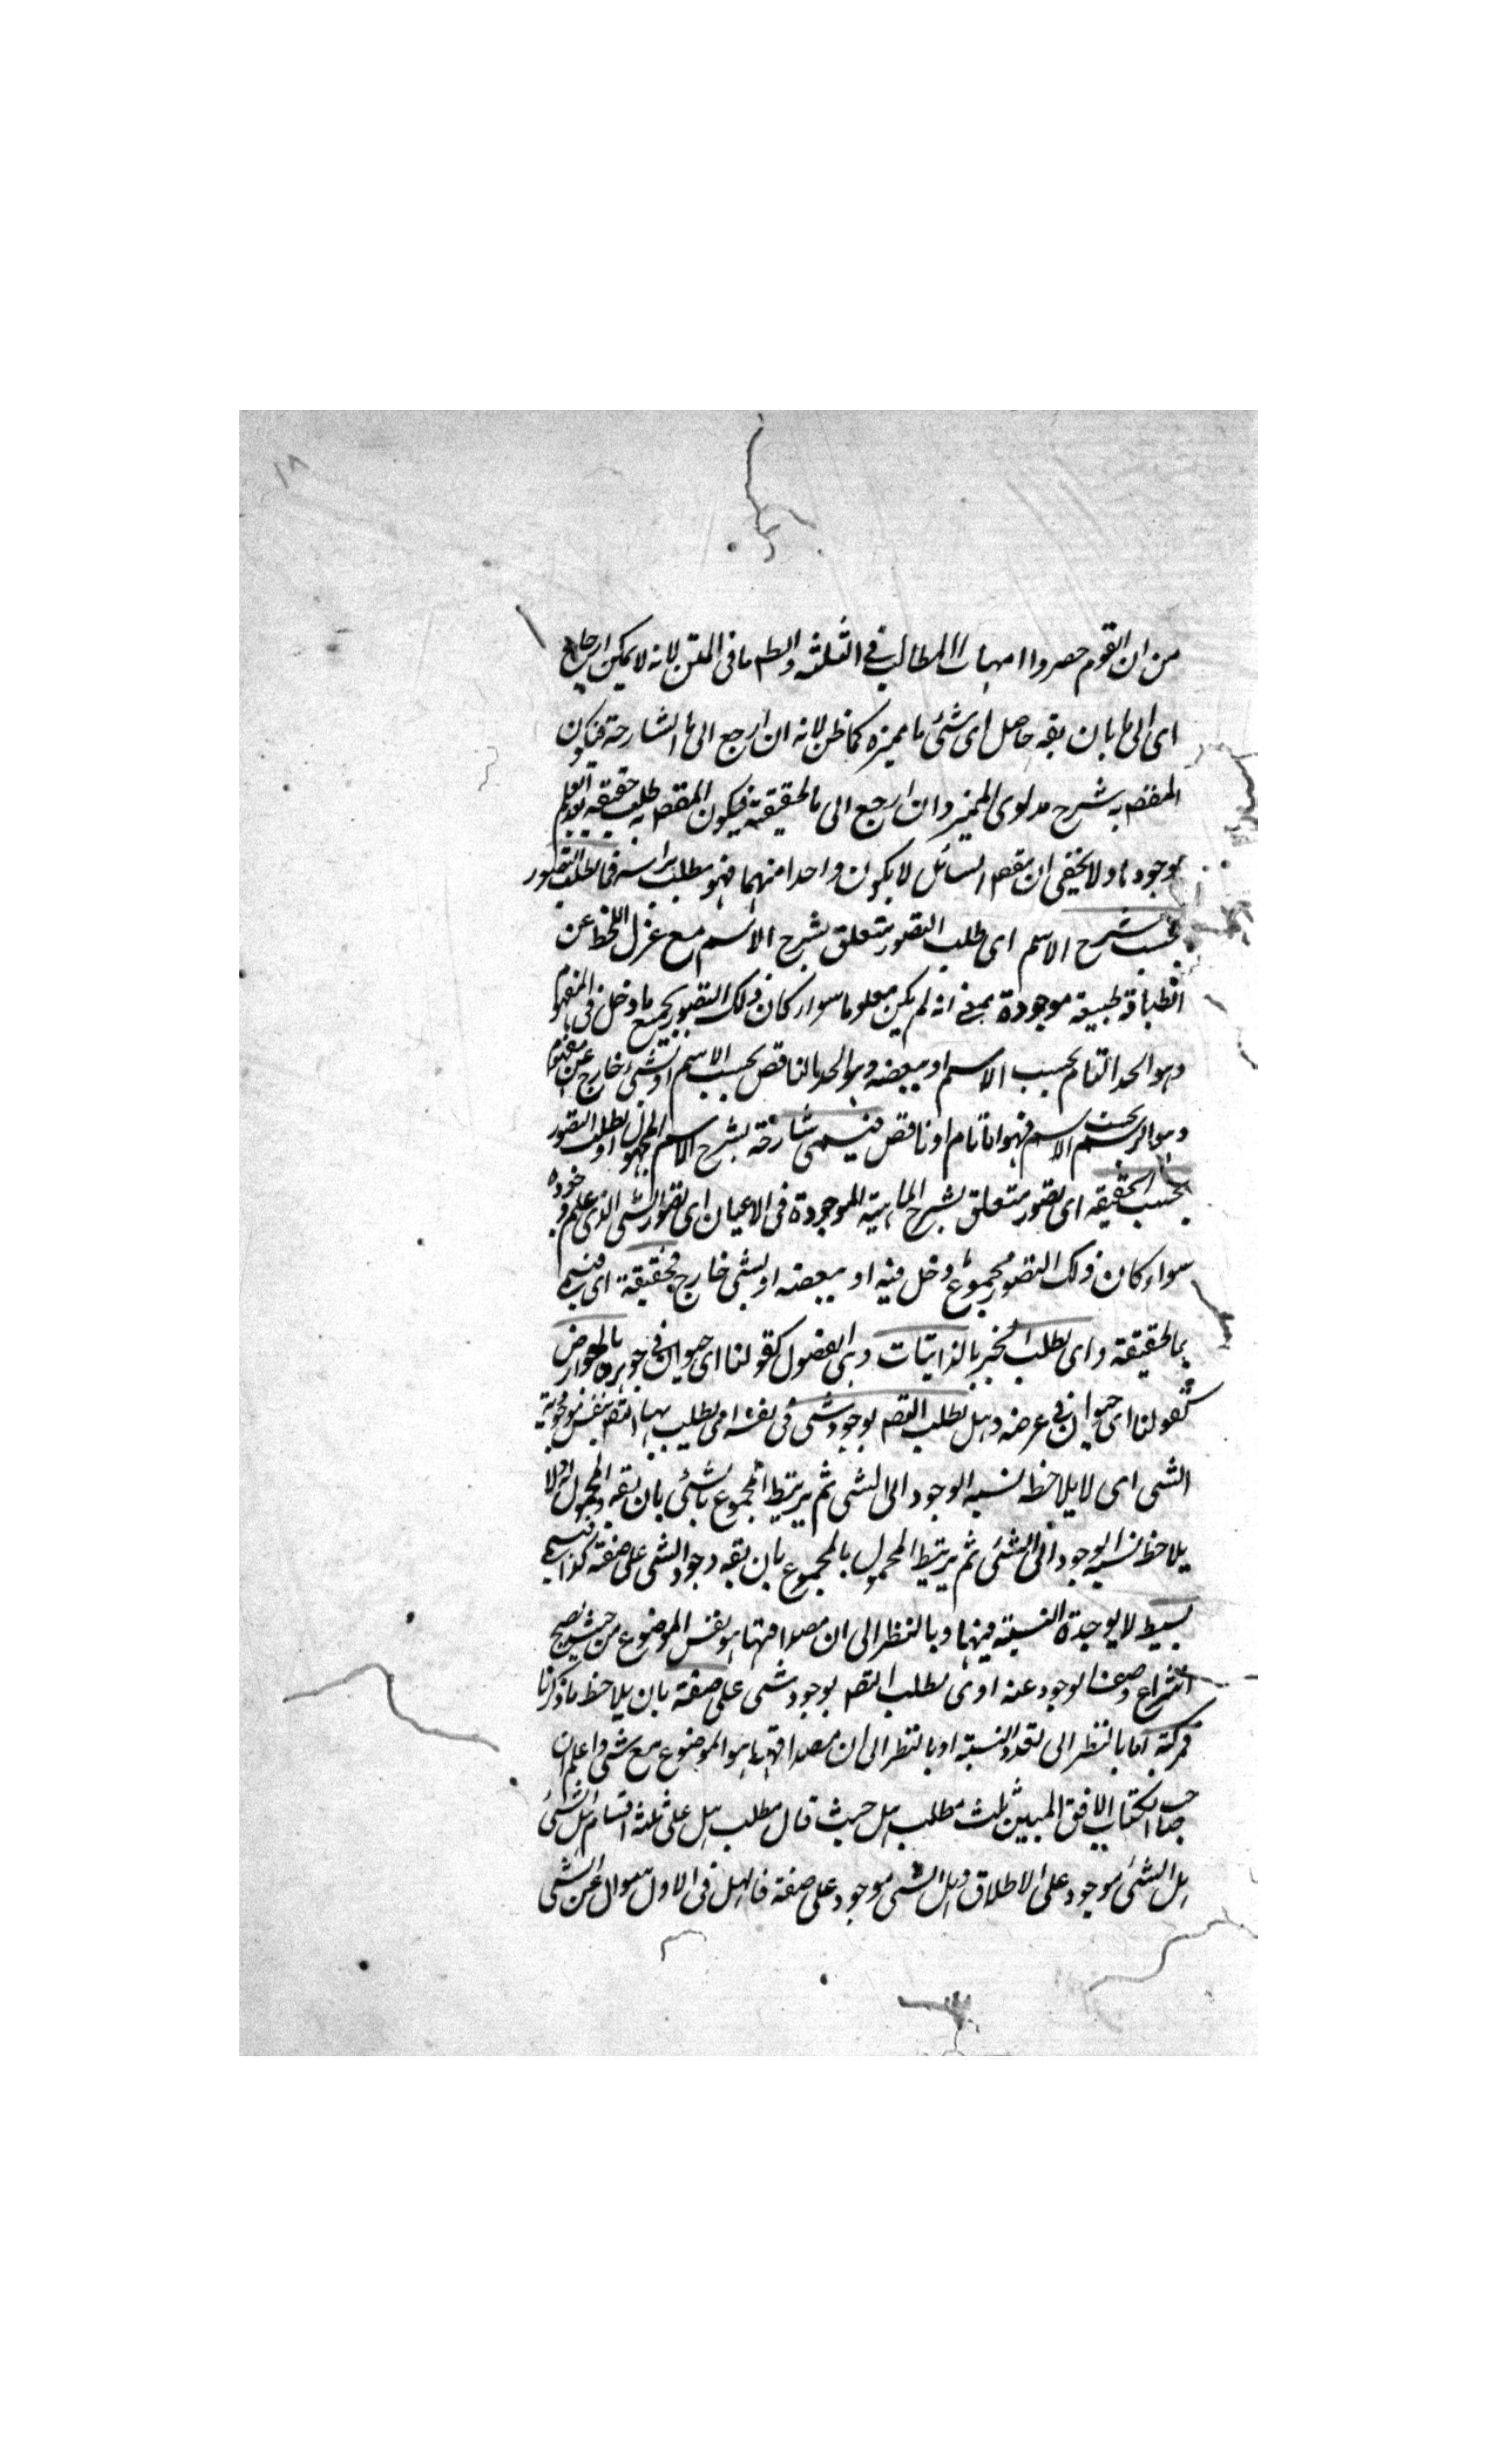 ١٨
من ان القوم حصروا امهات المطالب فى الثلثة والظ ما فى المتن لانه لا يمكن ارجاع
اى الى ما بان يقه حاصل اى شئ ما مميزه كما ظن لانه ان ارجع الى ما الشارحة فيكون
المقصه به شرح مدلوى المميز وان ارجع الى ما الحقيقية فيكون المقصه به طلب حقيقة بعد العلم
بوجودها ولا يخفى ان مقصه السائل لا يكون واحدا منهما فهو مطلب براسه فما لطلب التصور
بحسب شرح الاسم اى طلب التصور متعلق بشرح الاسم مع عزل اللحظ عن
انطباقه طبيعة موجودة بمعنى انه لم يكن معلوما سواء كان ذلك التصور بجميع ما دخل فى المفهوم
وهو الحد التام بحسب الاسم او ببعضه وهو الحد الناقص بحسب الاسم او بشئ خارج عن مفهوم
وهو الرسم بحسب الاسم فهو اما تام او ناقص فيسمى شارحة لشرح الاسم المجهول او لطلب التصور
بحسب الحقيقة اى تصور متعلق بشرح الماهية الموجودة فى الاعيان اى تصور الشئ الذى علم وجوده
سواء كان ذلك التصور بمجموع دخل فيه او ببعضه او بشئ خارج فحقيقة اى فيسمى
بما الحقيقية واى لطلب المميز بالذاتيات وهى الفصول كقولنا اى حيوان فى جوهره او بالعوارض
كقولنا اى حيوان فى عرضه وهل لطلب التصه بوجود شئ فى نفسه اى يطلب بها التصه بنفس موجودية
الشئ اى لا يلاحظ نسبة الوجود الى الشئ ثم يرتبط المجموع بالشئ بان يقه المحمول اولا
يلاحظ نسبة الوجود الى الشئ ثم يرتبط المحمول بالمجموع بان يقه وجود الشئ على صفة كذا فيسمى
بسيط لا يوجدة النسبة فيها وبالنظر الى ان مصداقها هو نفس الموضوع من حيث يصح
انتزاع وصف الوجود عنه او لطلب التصه بوجود شئ على صفة بان يلاحظ ما ذكرنا
فمركبة اما بالنظر الى تعدد النسبة او بالنظر الى ان مصداقها هو الموضوع مع شئ واعلم ان
صاحب الكتاب الافق المبين ثلث مطلب هل حيث قال مطلب هل على ثلثة اقسام هل الشئ
هل الشئ موجود على الاطلاق وهل الشئ موجود على صفة فالهل فى الاول سوال عن الشئ